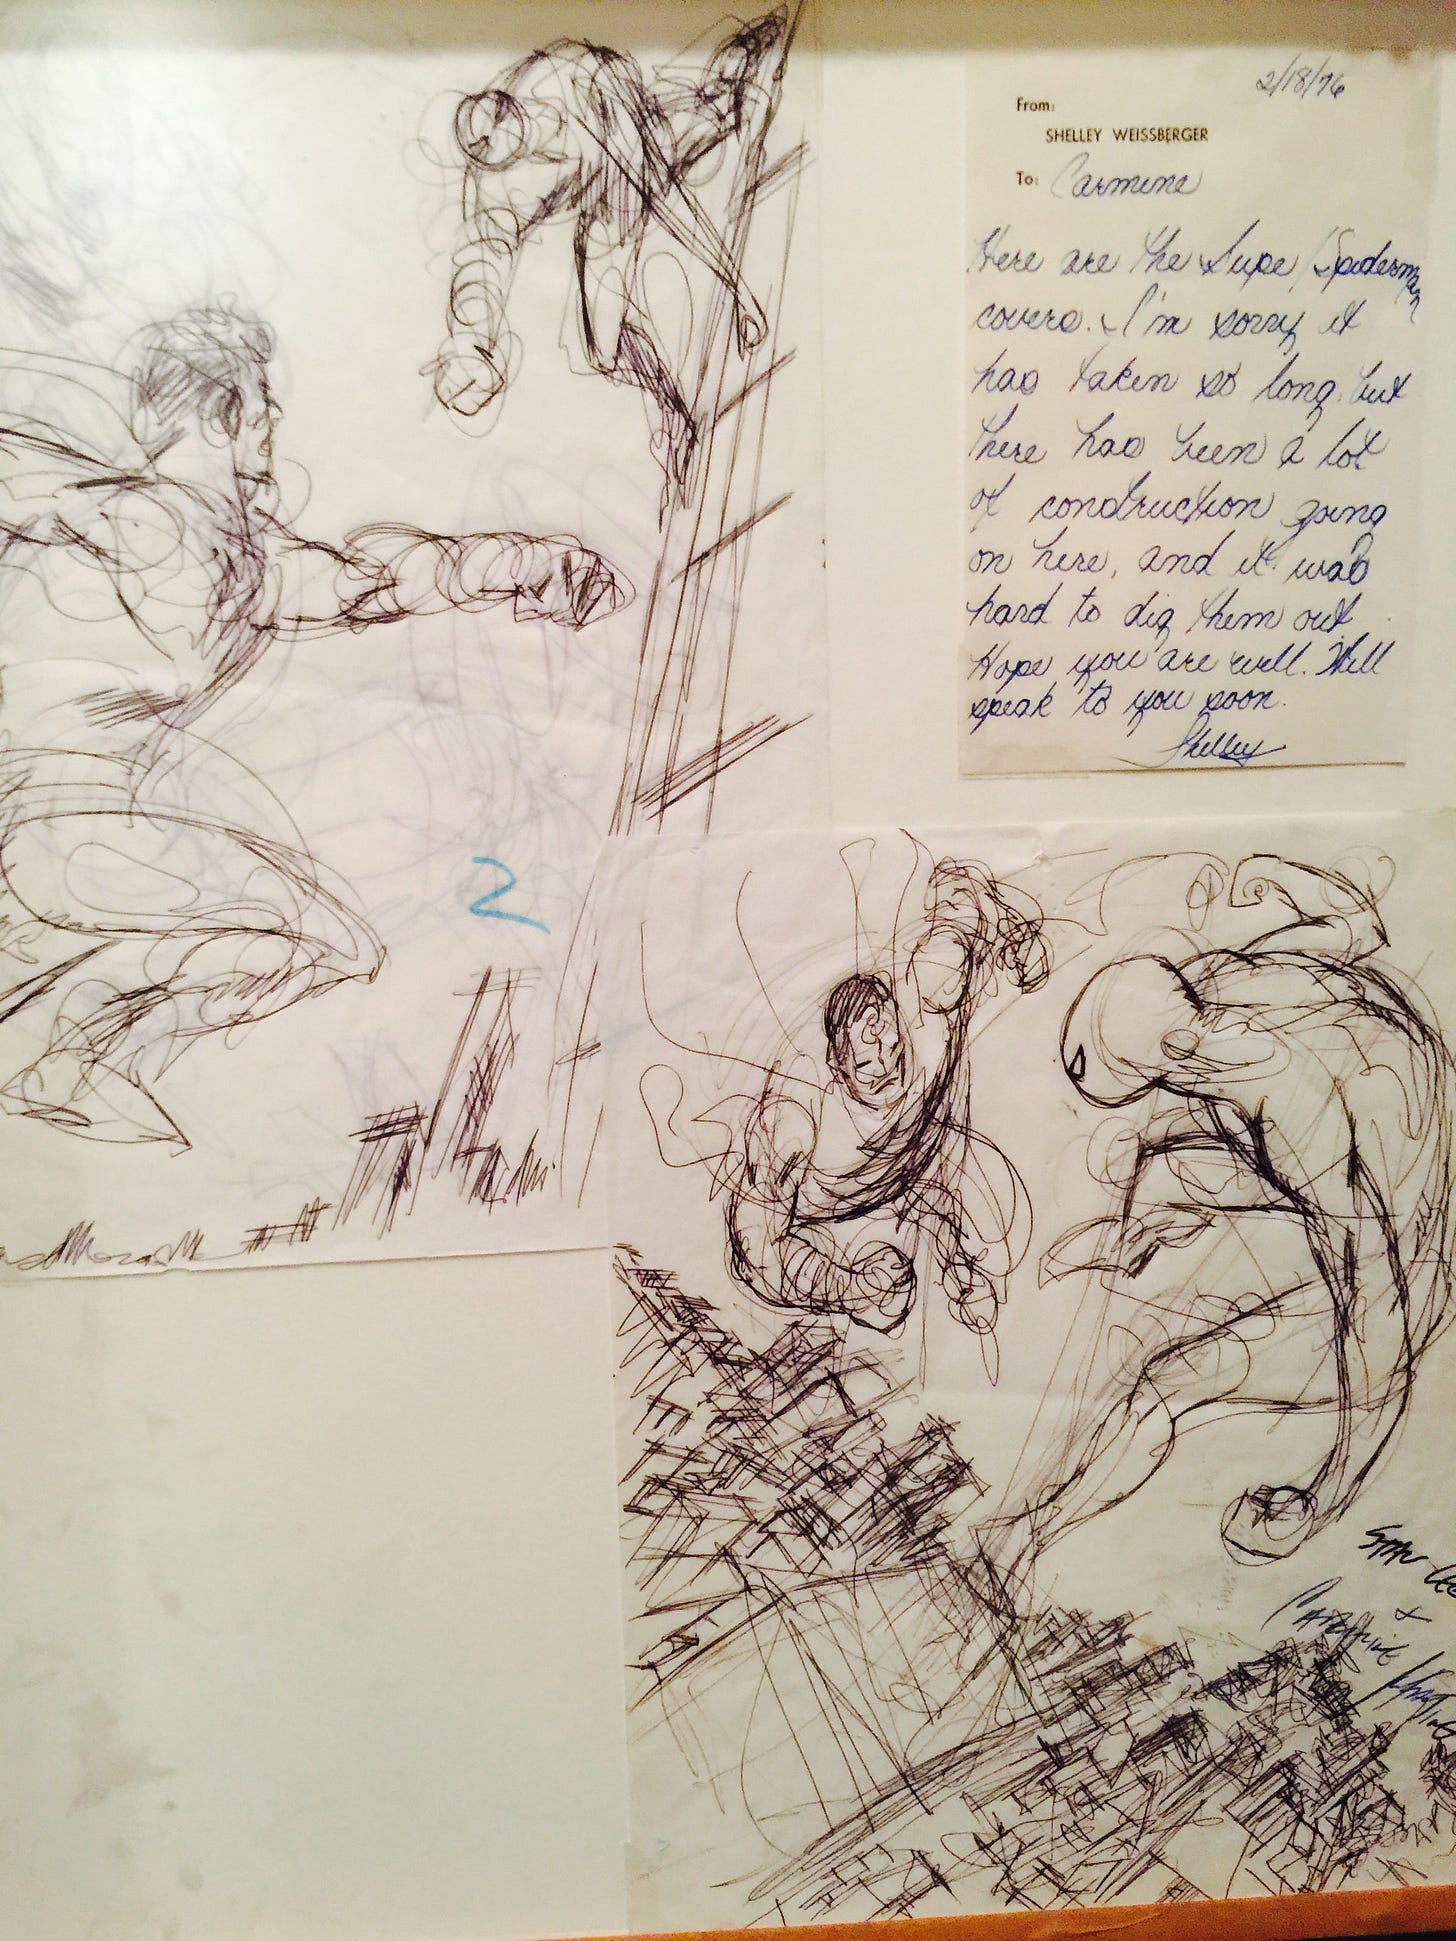 2/18/76
From:
SHELLEY WEISSBERGER
To: Carmine
Here are the Supe/Spiderman
covers. I'm sorry it
has taken so long but
there has been a lot
of construction going
on here, and it was
hard to dig them out
Hope you are well. Will
speak to you soon.
Shelley
2
Stan Lee
&
Carmine